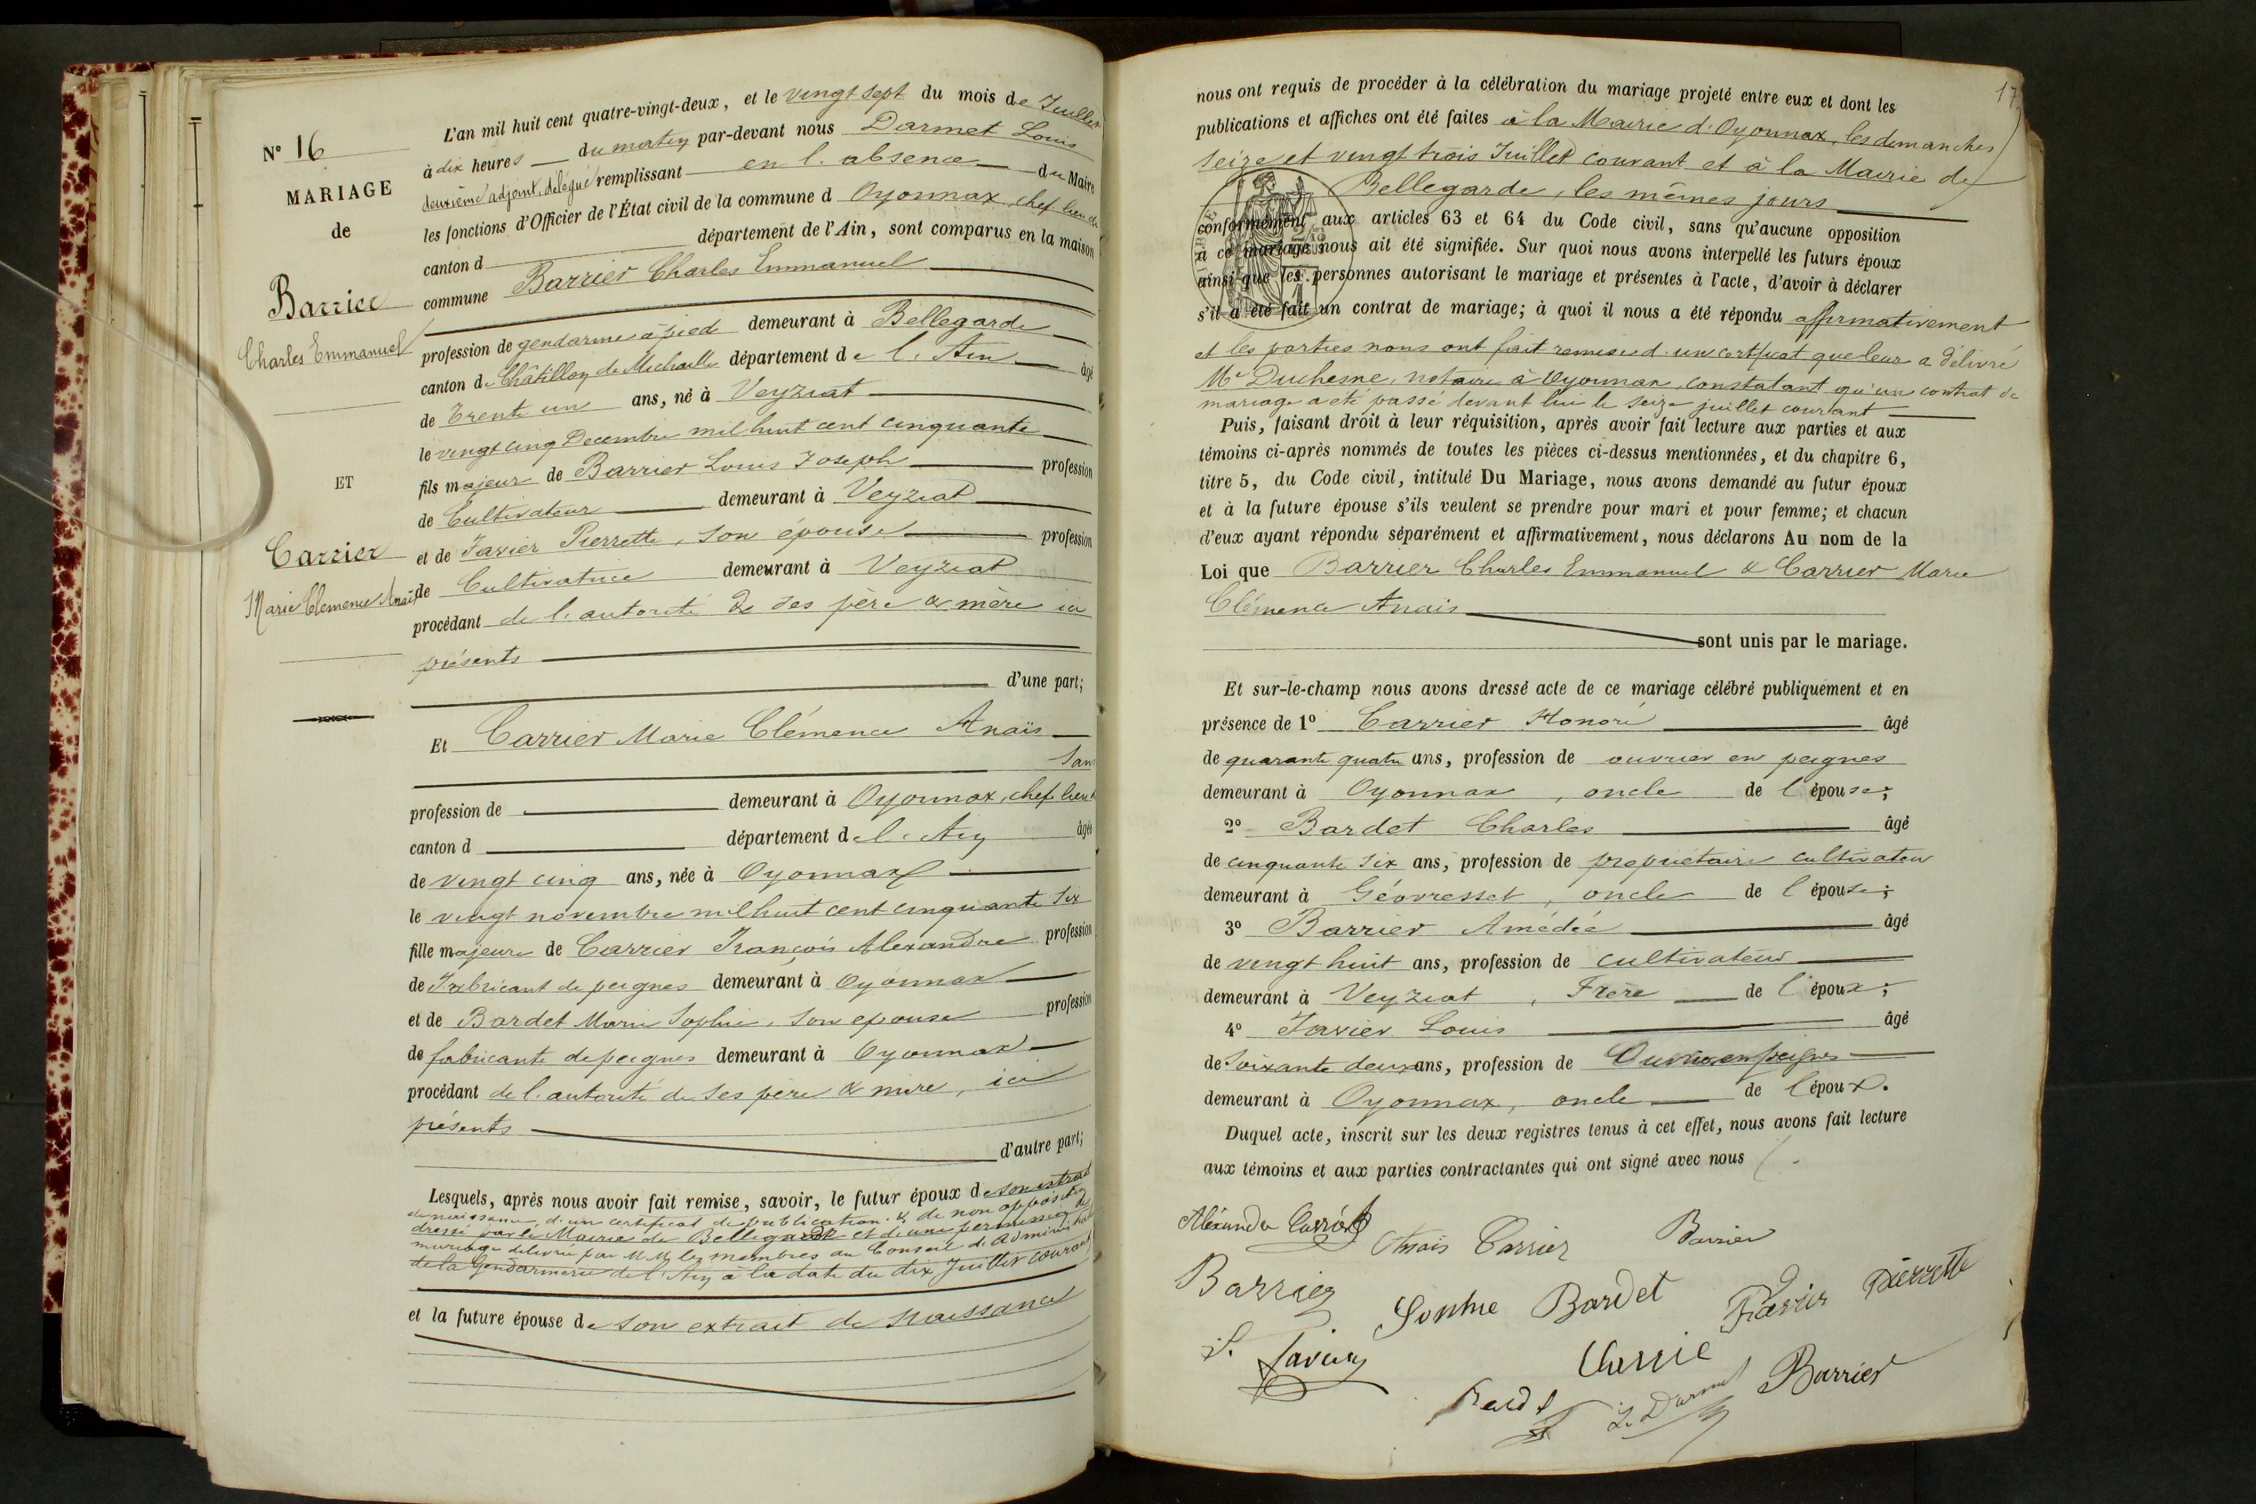 N° 16
MARIAGE
de
Barrier
Charles Emmanuel
ET
Carrier
Marie Clémence Anaïs
L'an mil huit cent quatre-vingt-deux, et le vingt sept du mois de Juillet
à dix heures du matin par-devant nous Darmet Louis
deuxième adjoint délégué remplissant en l'absence du Maire
les fonctions d'Officier de l'État civil de la commune d Oyonnax, chef lieu de
canton d département de l'Ain, sont comparus en la maison
commune Barrier Charles Emmanuel
profession de gendarme à pied demeurant à Bellegarde
canton de Châtillon de Michaille département de l'Ain âgé
de Trente un ans, né à Veyziat
le vingt cinq Decembre mil huit cent cinquante
fils majeur de Barrier Louis Joseph profession
de Cultivateur demeurant à Veyziat
et de Favier Pierrette, son épouse profession
de Cultivatrice demeurant à Veyziat
procédant de l'autorité de ses père & mère ici
présents
d'une part;
Et Carrier Marie Clémence Anaïs
Sans
profession de demeurant à Oyonnax, chef lieu de
canton d département de l'Ain âgée
de vingt cinq ans, née à Oyonnax
le vingt novembre mil huit cent cinquante six
fille majeure de Carrier François Alexandre profession
de Fabricant de peignes demeurant à Oyonnax
et de Bardet Marie Sophie, son epouse profession
de fabricante de peignes demeurant à Oyonnax
procédant de l'autorité de ses père & mère, ici
présents
d'autre part;
Lesquels, après nous avoir fait remise, savoir, le futur époux de son extrait
de naissance, d'un certificat de publication & de non opposition
dressé par le Mairie de Bellegarde et d'une permission de
mariage délivrée par M M les membres du Conseil d'Administration
de la Gendarmerie de l'Ain à la date du dix Juillet courant
et la future épouse de son extrait de naissance
17
nous ont requis de procéder à la célébration du mariage projeté entre eux et dont les
publications et affiches ont été faites à la Mairie d'Oyonnax, les dimanches
seize et vingt trois Juillet courant et à la Mairie de
Bellegarde, les mêmes jours
conformément aux articles 63 et 64 du Code civil, sans qu'aucune opposition
à ce mariage nous ait été signifiée. Sur quoi nous avons interpellé les futurs époux
ainsi que les personnes autorisant le mariage et présentes à l'acte, d'avoir à déclarer
s'il a été fait un contrat de mariage; à quoi il nous a été répondu affirmativement
et les parties nous ont fait remise d'un certificat que leur a délivré
Me Duchesne, notaire à Oyonnax, constatant qu'un contrat de
mariage a été passé devant lui le seize juillet courant
Puis, faisant droit à leur réquisition, après avoir fait lecture aux parties et aux
témoins ci-après nommés de toutes les pièces ci-dessus mentionnées, et du chapitre 6,
titre 5, du Code civil, intitulé Du Mariage, nous avons demandé au futur époux
et à la future épouse s'ils veulent se prendre pour mari et pour femme; et chacun
d'eux ayant répondu séparément et affirmativement, nous déclarons Au nom de la
Loi que Barrier Charles Emmanuel & Carrier Marie
Clémence Anaïs
sont unis par le mariage.
Et sur-le-champ nous avons dressé acte de ce mariage célébré publiquement et en
présence de 1° Carrier Honoré âgé
de quarante quatre ans, profession de ouvrier en peignes
demeurant à Oyonnax, oncle de l'épouse;
2° Bardet Charles âgé
de cinquante six ans, profession de propriétaire cultivateur
demeurant à Géovresset, oncle de l'épouse;
3° Barrier Amédée âgé
de vingt huit ans, profession de cultivateur
demeurant à Veyziat, Frère de l'époux;
4° Favier Louis âgé
de Soixante deux ans, profession de Ouvrier en peignes
demeurant à Oyonnax, oncle de l'époux.
Duquel acte, inscrit sur les deux registres tenus à cet effet, nous avons fait lecture
aux témoins et aux parties contractantes qui ont signé avec nous
Alexandre Carrier Anais Carrier Barrier
Barrier Sophie Bardet Favier Pierrette
L. Favier Carrie
Bardet L. Darmet Barrier